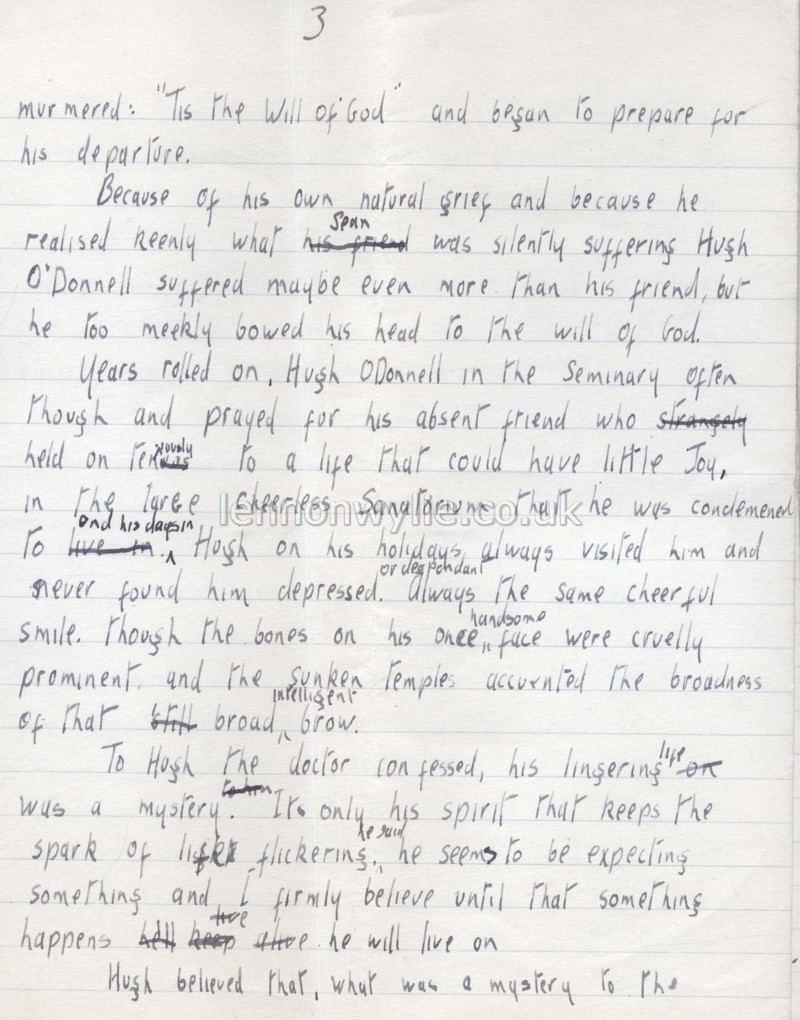 3
murmered: "Tis the Will of God" and began to prepare for
his departure.
Because of his own natural grief and because he
Sean
realised keenly what his friend was silently suffering Hugh
O'Donnell suffered maybe even more than his friend, but
he too meekly bowed his head to the will of God.
Years rolled on, Hugh ODonnell in the Seminary often
though and prayed for his absent friend who strangely
held on tenuously to a life that could have little Joy,
in the large cheerless Sanatorium that he was condemened
lennonwylie.co.uk
end his days in
to live in. Hugh on his holidays always visited him and
or despondant
never found him depressed. always the same cheerful
handsome
smile. though the bones on his once face were cruelly
prominent. and the sunken temples accuented the broadness
intelligent
of that still broad brow.
life
To Hugh the doctor confessed, his lingering on
to him
was a mystery. Its only his spirit that keeps the
he said
spark of life flickering, he seems to be expecting
something and I firmly believe until that something
live
happens he'll keep alive he will live on
Hugh believed that, what was a mystery to the